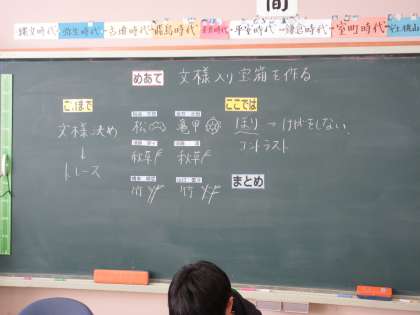 間
縄文時代 弥生時代 古墳時代 飛鳥時代 奈良時代 平安時代 鎌倉時代 室町時代 安土桃山
めあて 文様入り宝箱を作る
これまで
文様決め
↓
トレース
松 亀甲
秋草 秋草
竹 竹
ここでは
ほり → けがをしない
コントラスト
まとめ